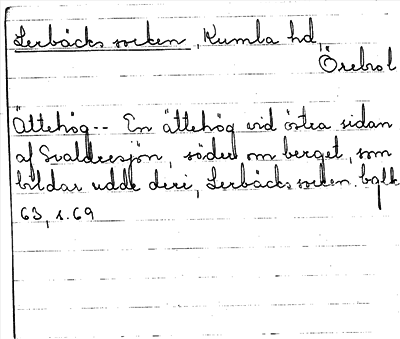 Lerbäcks socken, Kumla hd,
Örebro l
Ättehög-- En ättehög vid östra sidan
af Svaldresjön, söder om berget, som
bildar udde deri, Lerbäcks socken.
63, s. 69